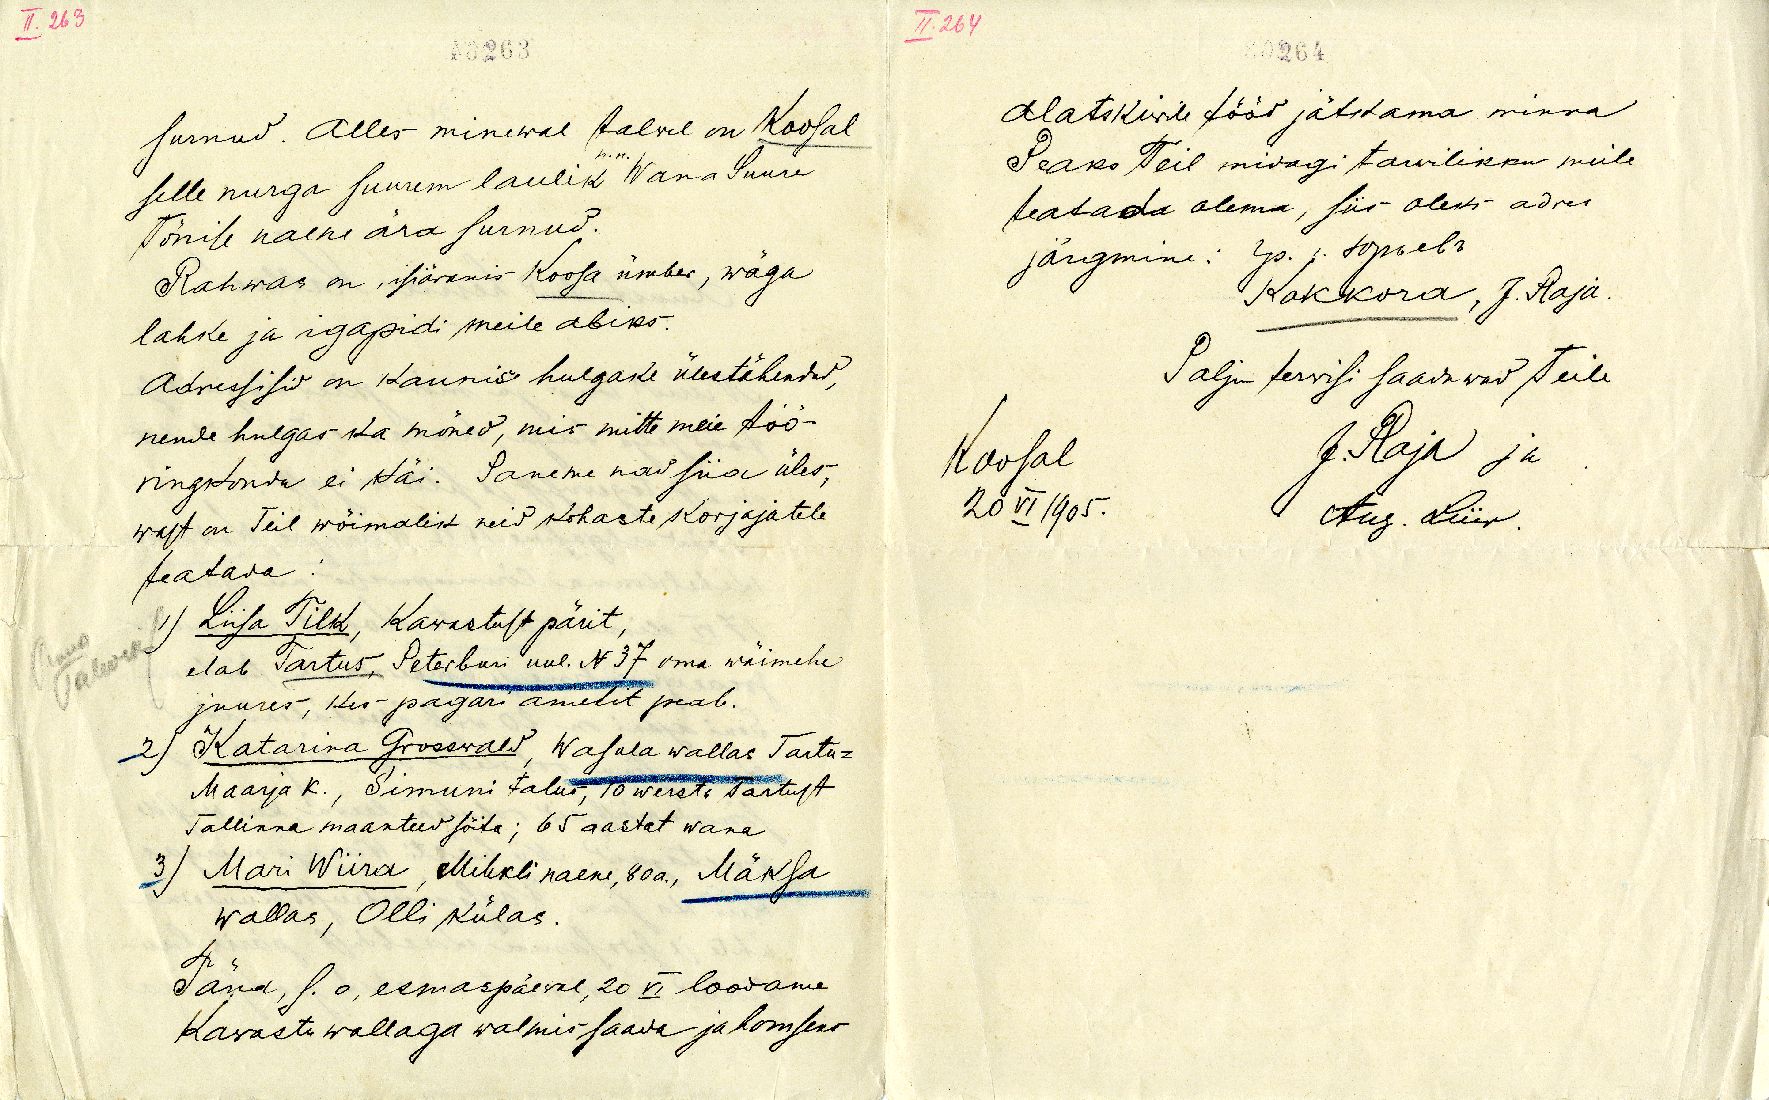 II. 263
263
surnud. Alles minewal talwel on Koosal
selle nurga suurem laulik n.n. Wana Suure
Tõnise naene ära surnud.
Rahwas on, isiäranis Koosa ümber, wäga
lahke ja igapidi meile abiks.
Adressisid on kaunis hulgake ülestähendud,
nende hulgas ka mõned, mis mitte meie töö-
ringkonda ei käi. Paneme nad siia üles,
wast on Teil wõimalik neid kohaste korjajatele
teatada:
1) Liisa Tilk, Kawastust pärit,
elab Tartus, Peterburi uul. N 37 oma wäimehe
juures, kes pagari ametit peab.
2) Katarina Grosswald, Wasula wallas Tartu-
Maarja k., Simuni talus, 10 wersta Tartust
Tallinna maanteed sõita; 65 aastat wana
3) Mari Wiira, Mihkli naene, 80 a., Mäksa
wallas, Olli külas.
Täna, s. o, esmaspäewal, 20 VI loodame
Kawastu wallaga walmis saada ja homseks
II. 264
264
Alatskiwile tööd jätkama minna
Peaks Teil midagi tarwilikku meile
teatada olema, siis oleks adres
järgmine: Юрьевъ
Kokkora, J. Raja.
Palju terwisi saadawad Teile
J. Raja ja
Aug. Liiw.
Koosal
20 VI 1905.